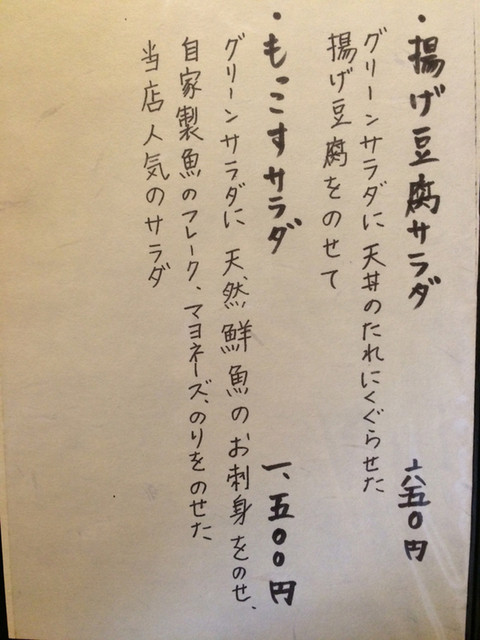 ・揚げ豆腐サラダ 六五〇円
グリーンサラダに天丼のたれにくぐらせた
揚げ豆腐をのせて
・もっこすサラダ 一、五〇〇円
グリーンサラダに天然鮮魚のお刺身をのせ、
自家製魚のフレーク、マヨネーズ、のりをのせた
当店人気のサラダ